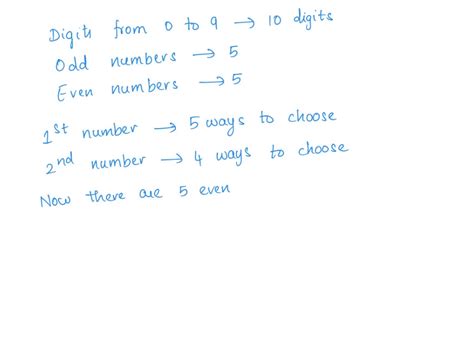 Digits from 0 to 9 → 10 digits
Odd numbers → 5
Even numbers → 5
1st number → 5 ways to choose
2nd number → 4 ways to choose
Now there are 5 even